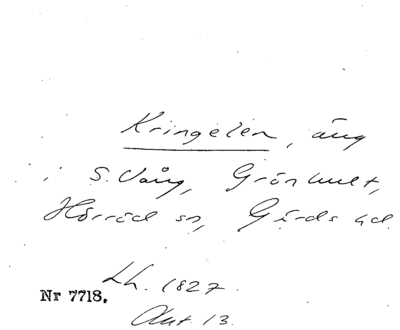 Kringelen, äng
i S. Vång, Grönhult,
Hörröd sn, Gärds hd.
Lh. 1827.
Nr 7718.
Akt. 13.